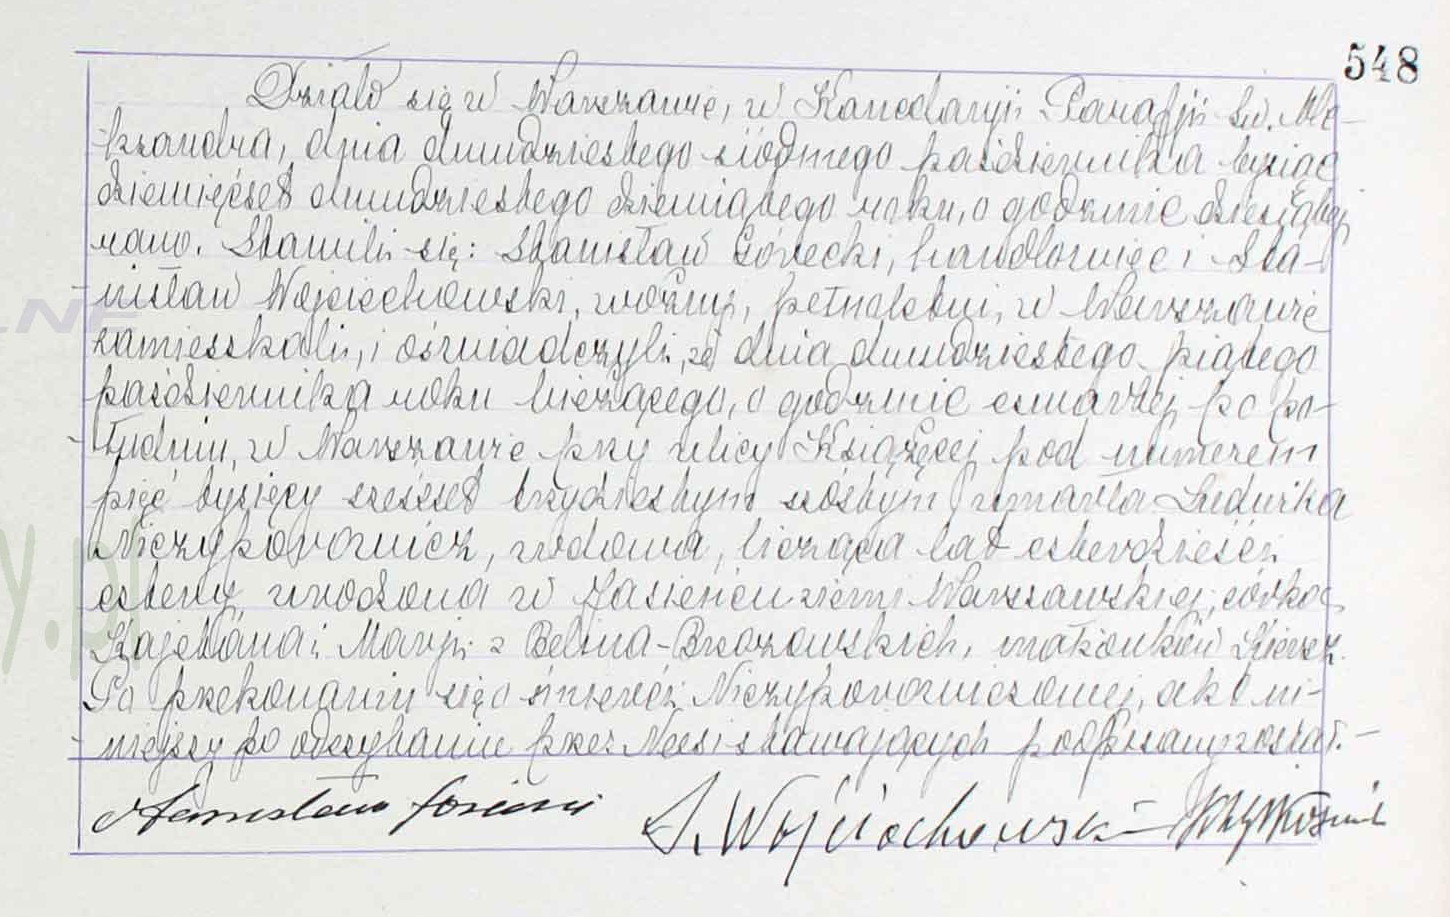 548
Działo się w Warszawie, w Kancelaryji Parafji Św. Ale-
ksandra, dnia dwudziestego siódmego października tysiąc
dziewięćset dwudziestego dziewiątego roku, o godzinie dziesiątej
rano. Stawili się: Stanisław Górecki, handlowiec i Sta-
nisław Wojciechowski, woźny, pełnoletni, w Warszawie
zamieszkali, i oświadczyli, że dnia dwudziestego piątego
października roku bieżącego, o godzinie czwartej po po-
łudniu, w Warszawie przy ulicy Książęcej pod numerem
pięć tysięcy sześćset trzydziestym szóstym zmarła Ludwika
Niezyporowicz, wdowa, licząca lat czterdzieści
cztery, urodzona w Jasieńcu ziemi Warszawskiej, córka
Kajetana i Maryi z Belina-Brzozowskich, małżonków
Po przekonaniu się o śmierci Niczyporowiczowej, akt ni-
niejszy po odczytaniu przez Nas i stawających podpisany został.-
Stanisław
S. Wojciechowski